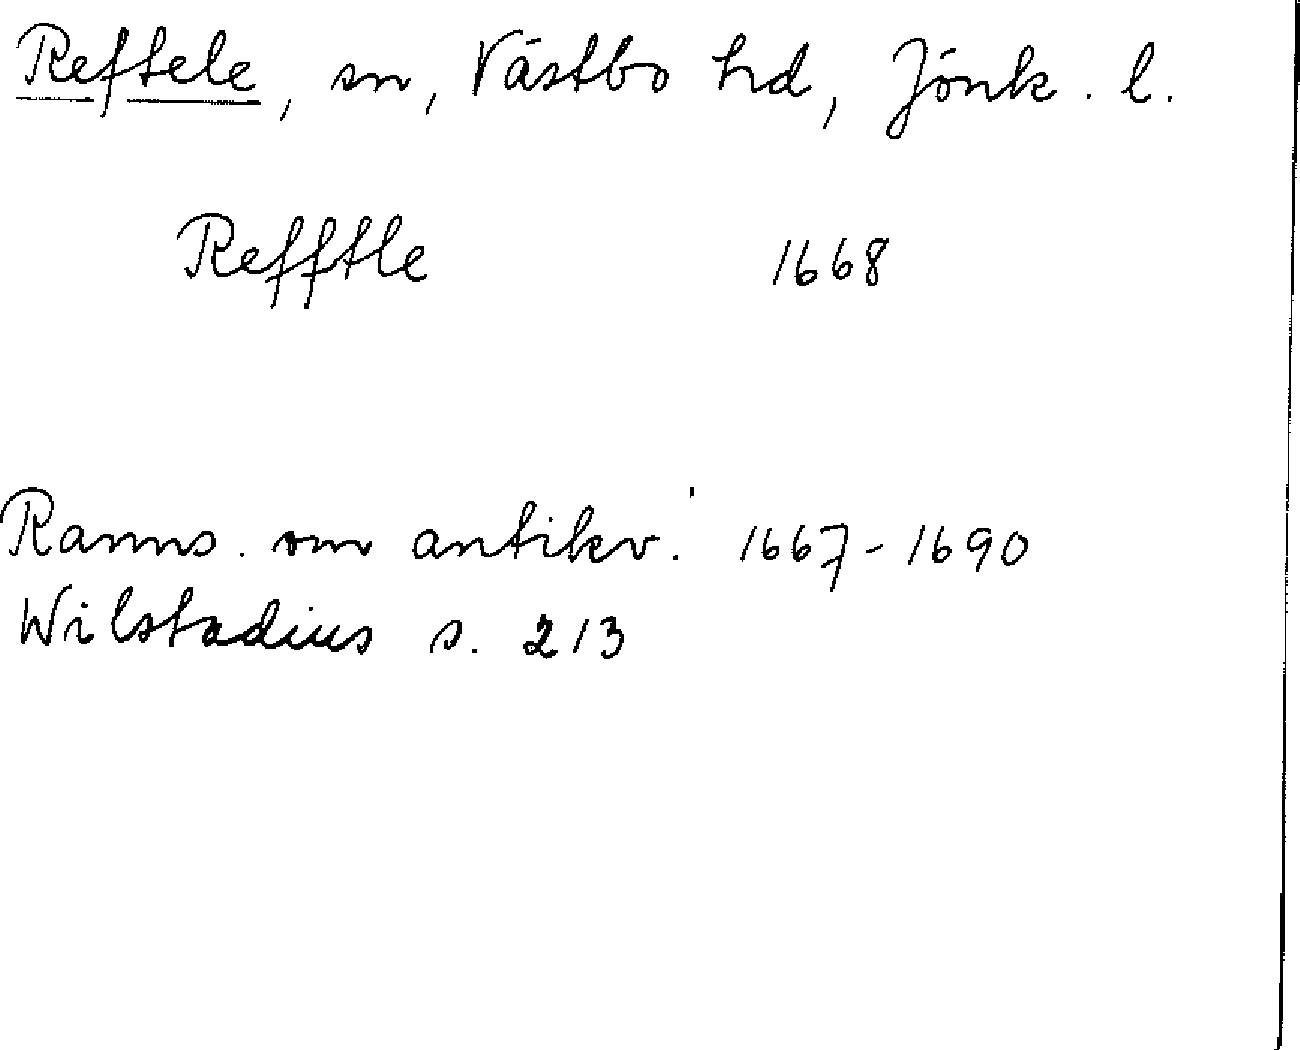 Reftele, sn, Västbo hd, Jönk. l.
Refftle 1668
Ranns. om antikv. 1667-1690
Wilstadius s. 213